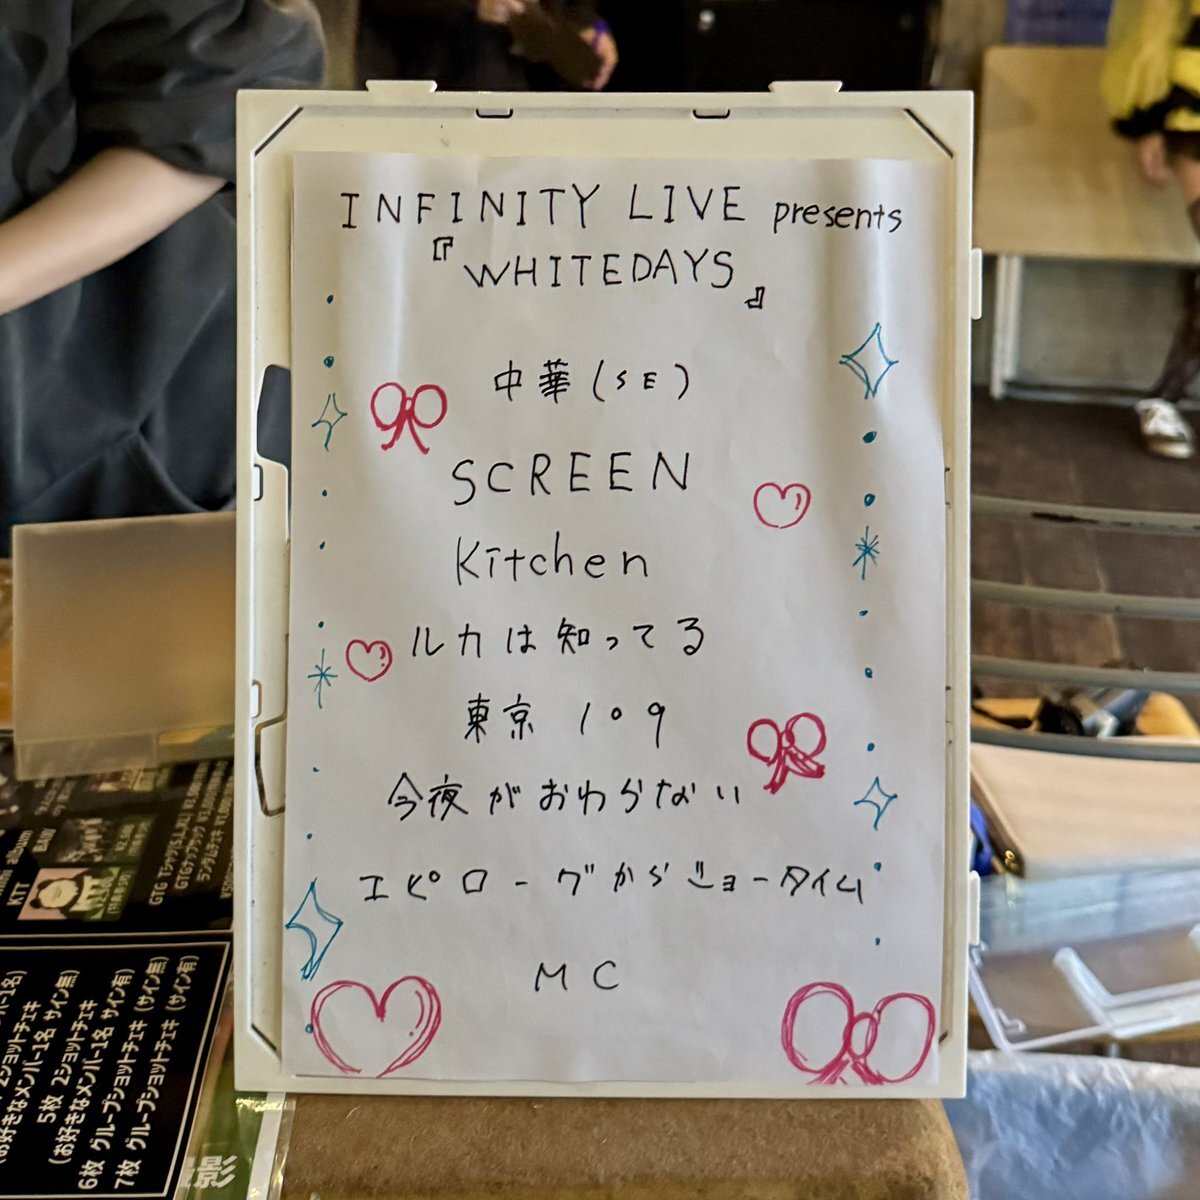 INFINITY LIVE presents
『WHITEDAYS』
中華(SE)
SCREEN
Kitchen
ルカは知ってる
東京109
今夜がおわらない
エピローグからショータイム
MC
KTT
GTG Tシャツ(S,M,L,XL)
2ショットチェキ
(お好きなメンバー1名)
5枚 2ショットチェキ
(お好きなメンバー1名 サイン有)
6枚 グループショットチェキ (サイン無)
7枚 グループショットチェキ (サイン有)